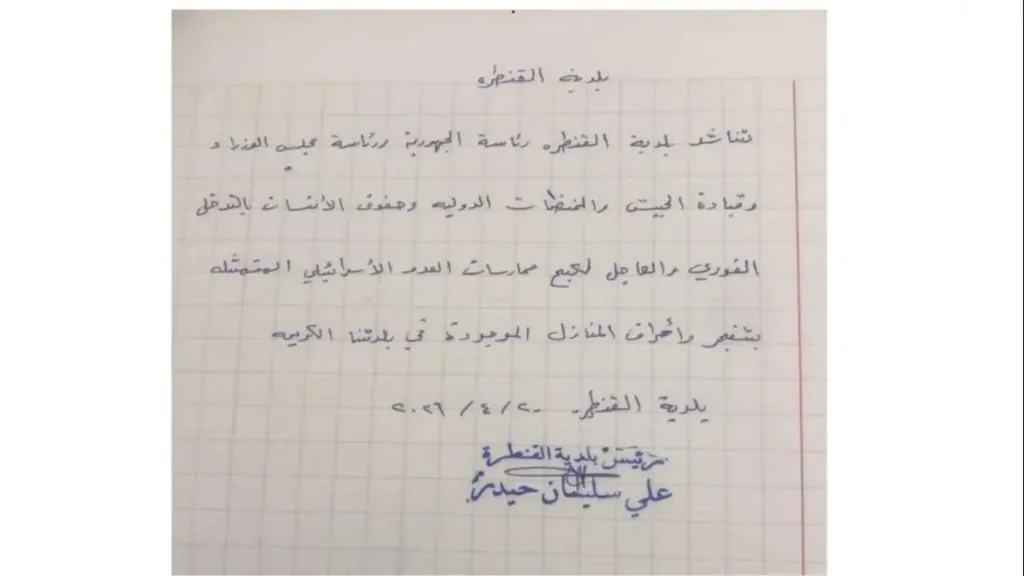 بلدية القنطره
تناشد بلدية القنطره رئاسة الجهورية ورئاسة مجلس الوزراء
وقيادة الجيش والمنضمات الدوليه وحقوق الأنسان بالتدخل
الفوري والعاجل لكبح ممارسات العدو الأسرائيلي المتمثله
بتفجير وأحراق المنازل الموجودة في بلدتنا الكريمه
بلدية القنطره ٢٠/٤/٢٠٢٦
رئيس بلدية القنطرة
علي سليمان حيدر